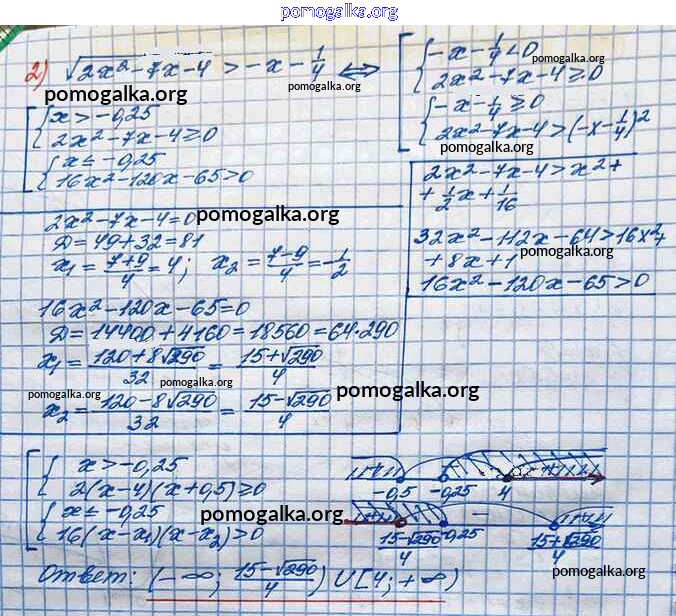 pomogalka.org
2) √(2x²-7x-4) > -x - 1/4 ⟺ [ { -x - 1/4 < 0
2x² - 7x - 4 ≥ 0
pomogalka.org
pomogalka.org
{ -x - 1/4 ≥ 0
2x² - 7x - 4 > (-x - 1/4)²
pomogalka.org
[ { x > -0,25
2x² - 7x - 4 ≥ 0
{ x ≤ -0,25
16x² - 120x - 65 > 0
2x² - 7x - 4 > x² +
+ 1/2 x + 1/16
32x² - 112x - 64 > 16x² +
+ 8x + 1
pomogalka.org
16x² - 120x - 65 > 0
2x² - 7x - 4 = 0
pomogalka.org
D = 49 + 32 = 81
x₁ = (7+9)/4 = 4; x₂ = (7-9)/4 = -1/2
16x² - 120x - 65 = 0
D = 14400 + 4160 = 18560 = 64·290
x₁ = (120 + 8√290)/32 = (15 + √290)/4
pomogalka.org
pomogalka.org
pomogalka.org
x₂ = (120 - 8√290)/32 = (15 - √290)/4
[ { x > -0,25
2(x-4)(x+0,5) ≥ 0
{ x ≤ -0,25
16(x-x₁)(x-x₂) > 0
pomogalka.org
-0,5 -0,25 4
(15-√290)/4 -0,25 (15+√290)/4
pomogalka.org
Ответ: (-∞; (15-√290)/4) ∪ [4; +∞)